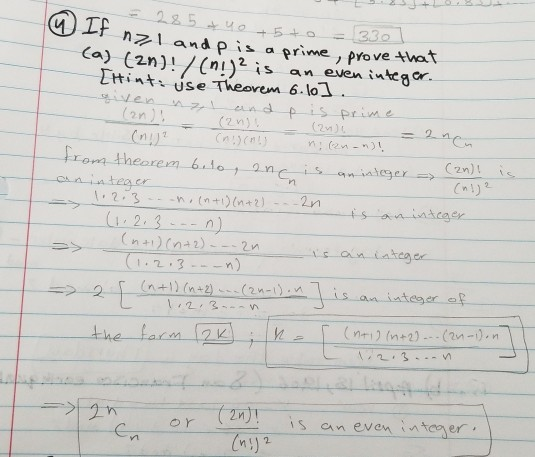 = 285 + 40 + 5 + 0 = 330
(4) If n ≥ 1 and p is a prime, prove that
(a) (2n)! / (n!)² is an even integer.
[Hint: Use Theorem 6.10].
given n ≥ 1 and p is prime
(2n)! / (n!)² = (2n)! / (n!)(n!) = (2n)! / n! (2n-n)! = 2nCn
from theorem 6.10, 2nCn is an integer => (2n)! / (n!)² is
an integer
=> 1.2.3 ---- n. (n+1)(n+2) ---- 2n / (1.2.3 --- n) is an integer
=> (n+1)(n+2) --- 2n / (1.2.3 --- n) is an integer
=> 2 [ (n+1)(n+2) --- (2n-1).n / 1.2.3 --- n ] is an integer of
the form 2K ; K = [ (n+1)(n+2) --- (2n-1).n / 1.2.3 --- n ]
=> 2nCn or (2n)! / (n!)² is an even integer.